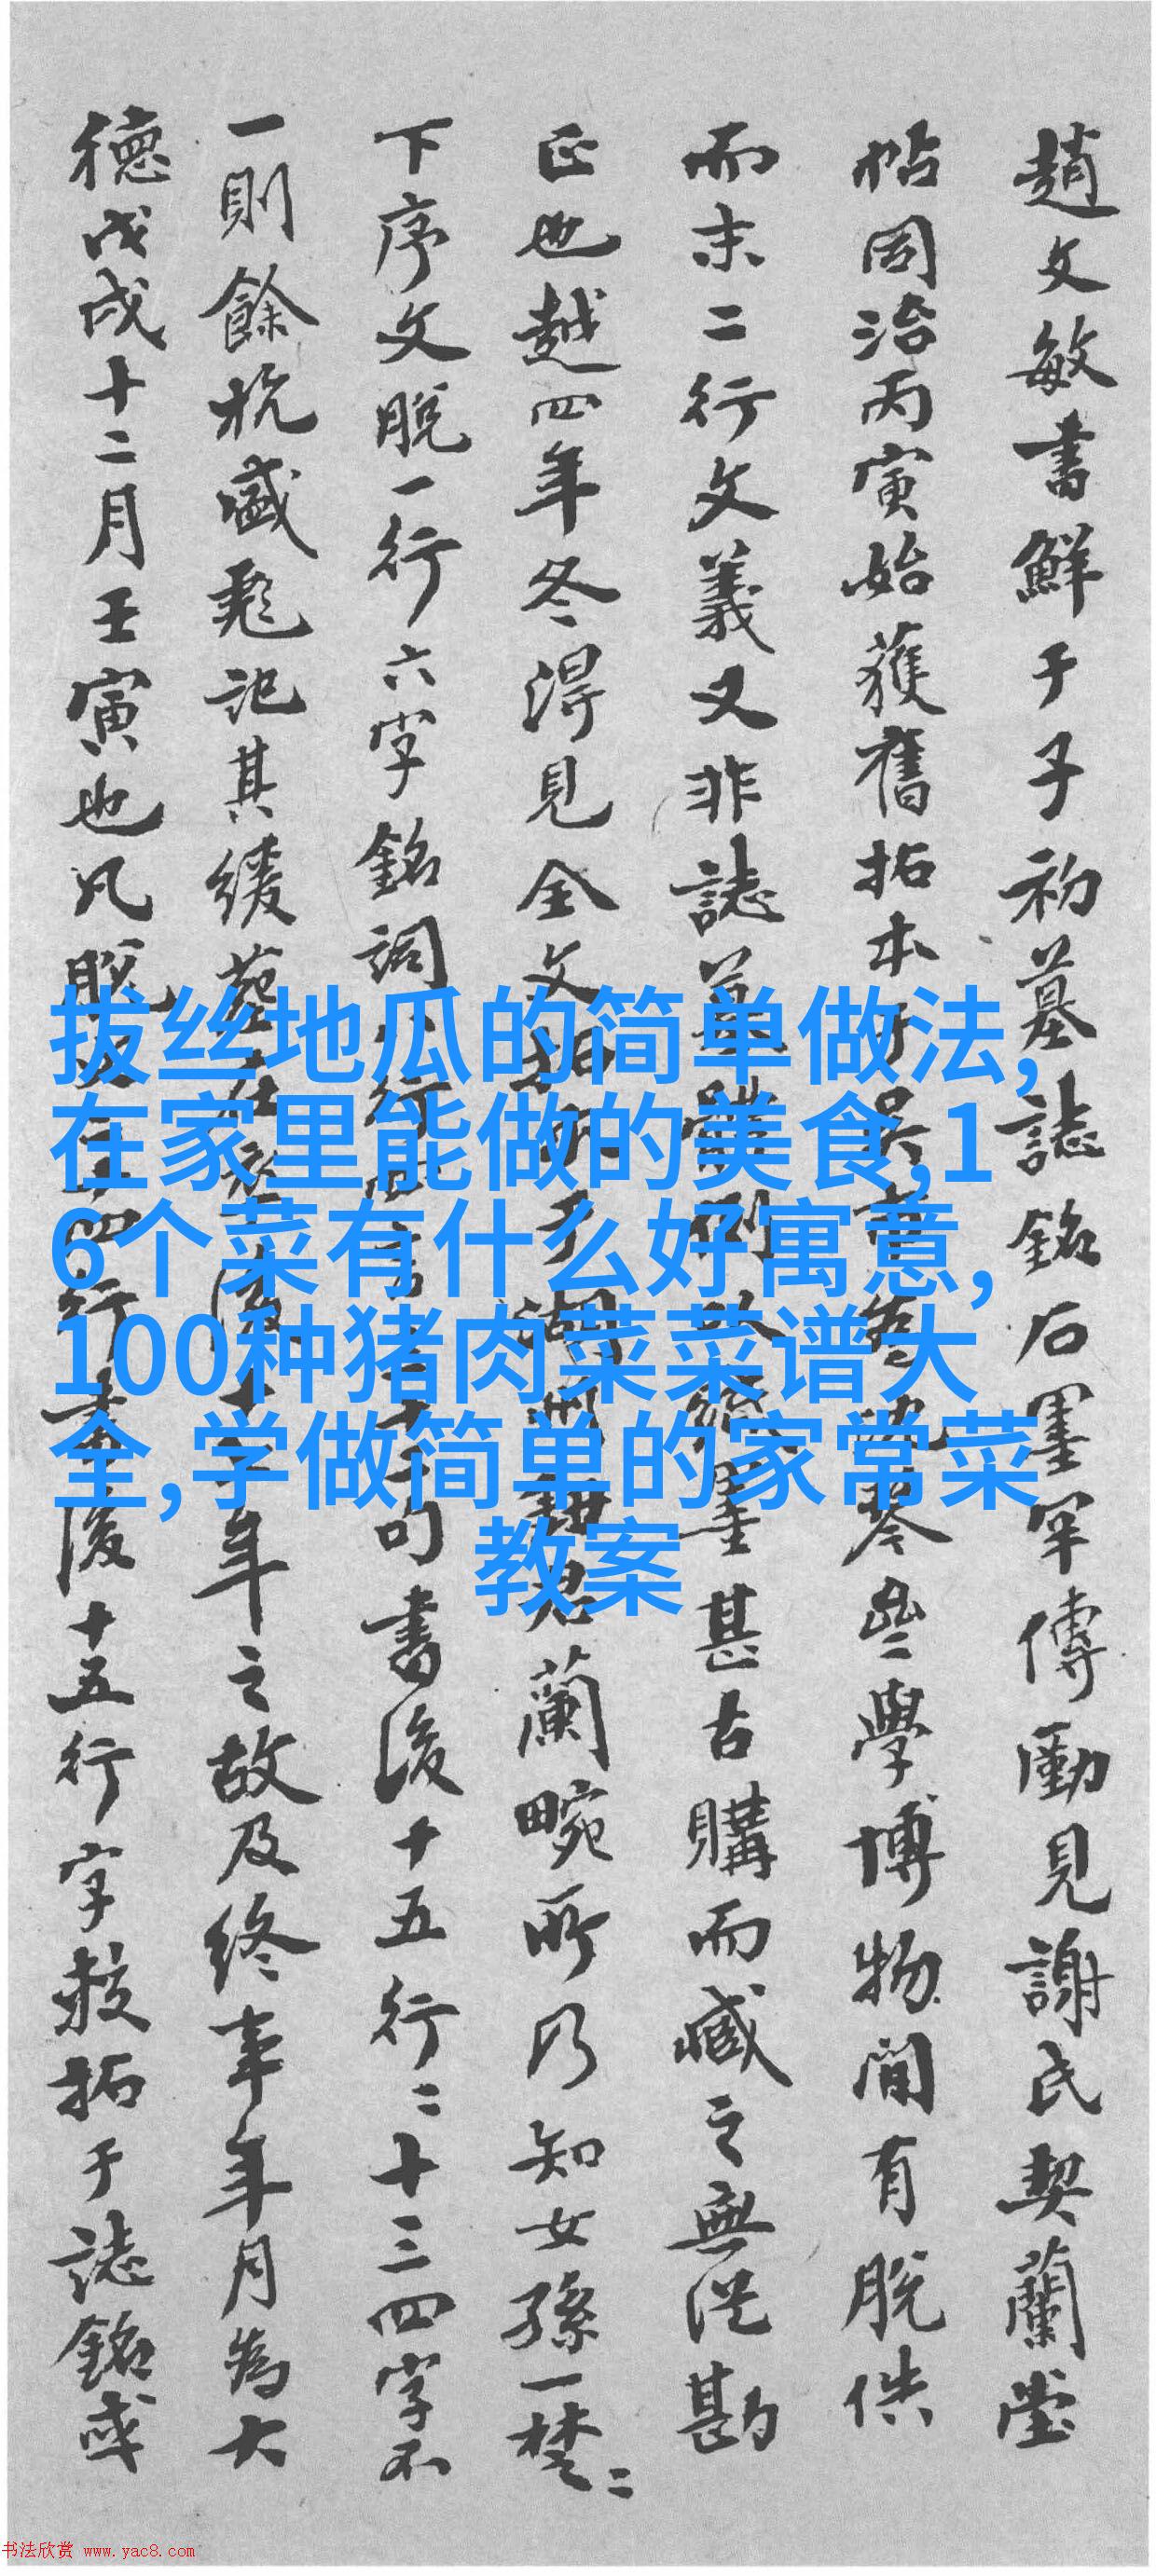 趙文敏書鮮于子初墓誌銘石墨罕傳勵見謝氏契蘭堂
帖同治丙寅始獲舊拓本 吳 琴 學博物閒有脫佚
而末二行文義又非誌墓 例 墨甚古購而藏之無從勘
正也越四年冬得見全文 于湖州 蘭畹所乃知女孫一楚二
下序文脫一行六字銘詞 行 十二句書後十五行二十三四字不
一則餘杭盛 記其緩葬 後十 年之故及終事年月為大
德戊戌十二月壬寅也凡脫 四行書後十五行字 拓于誌銘或
拔丝地瓜的简单做法,
在家里能做的美食,1
6个菜有什么好寓意,
100种猪肉菜菜谱大
全,学做简单的家常菜
教案
书法欣赏 www.yac8.com